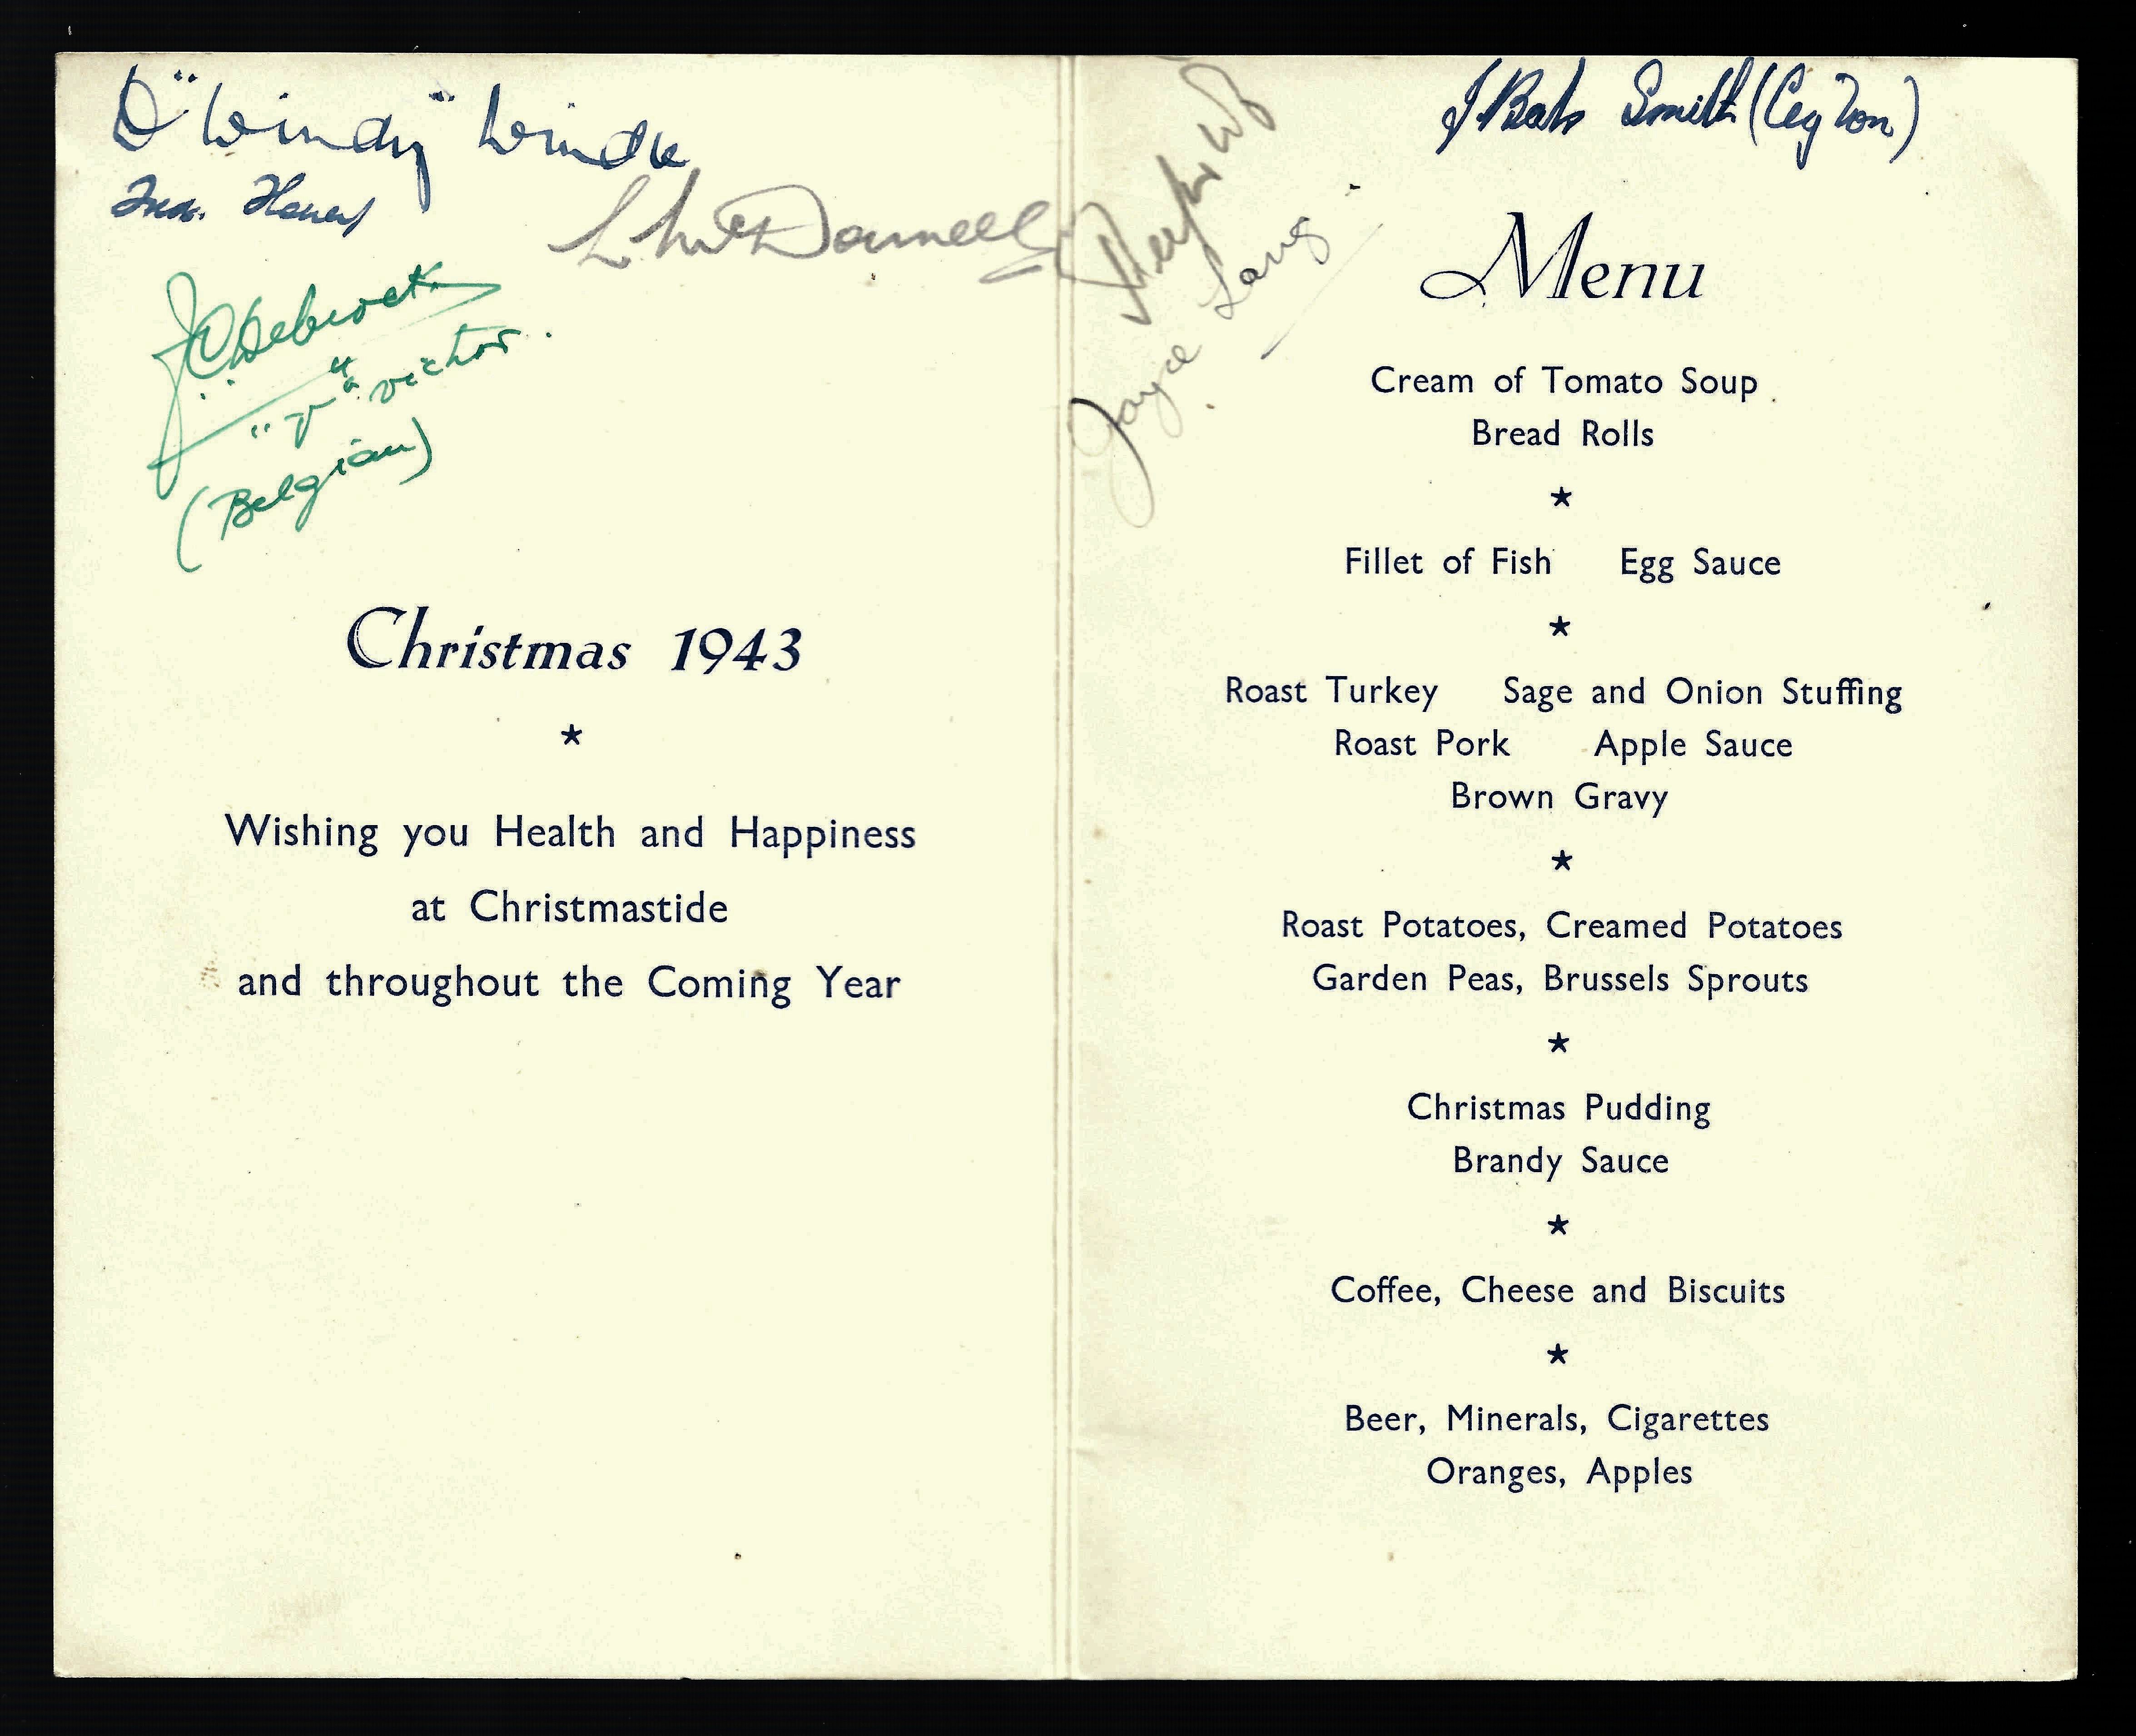 D "Windy" Windle
J C Debrock
"V" a victor.
(Belgian)
Joyce Lang
J Bats Smith (Ceylon)
Christmas 1943
★
Wishing you Health and Happiness
at Christmastide
and throughout the Coming Year
Menu
Cream of Tomato Soup
Bread Rolls
★
Fillet of Fish Egg Sauce
★
Roast Turkey Sage and Onion Stuffing
Roast Pork Apple Sauce
Brown Gravy
★
Roast Potatoes, Creamed Potatoes
Garden Peas, Brussels Sprouts
★
Christmas Pudding
Brandy Sauce
★
Coffee, Cheese and Biscuits
★
Beer, Minerals, Cigarettes
Oranges, Apples